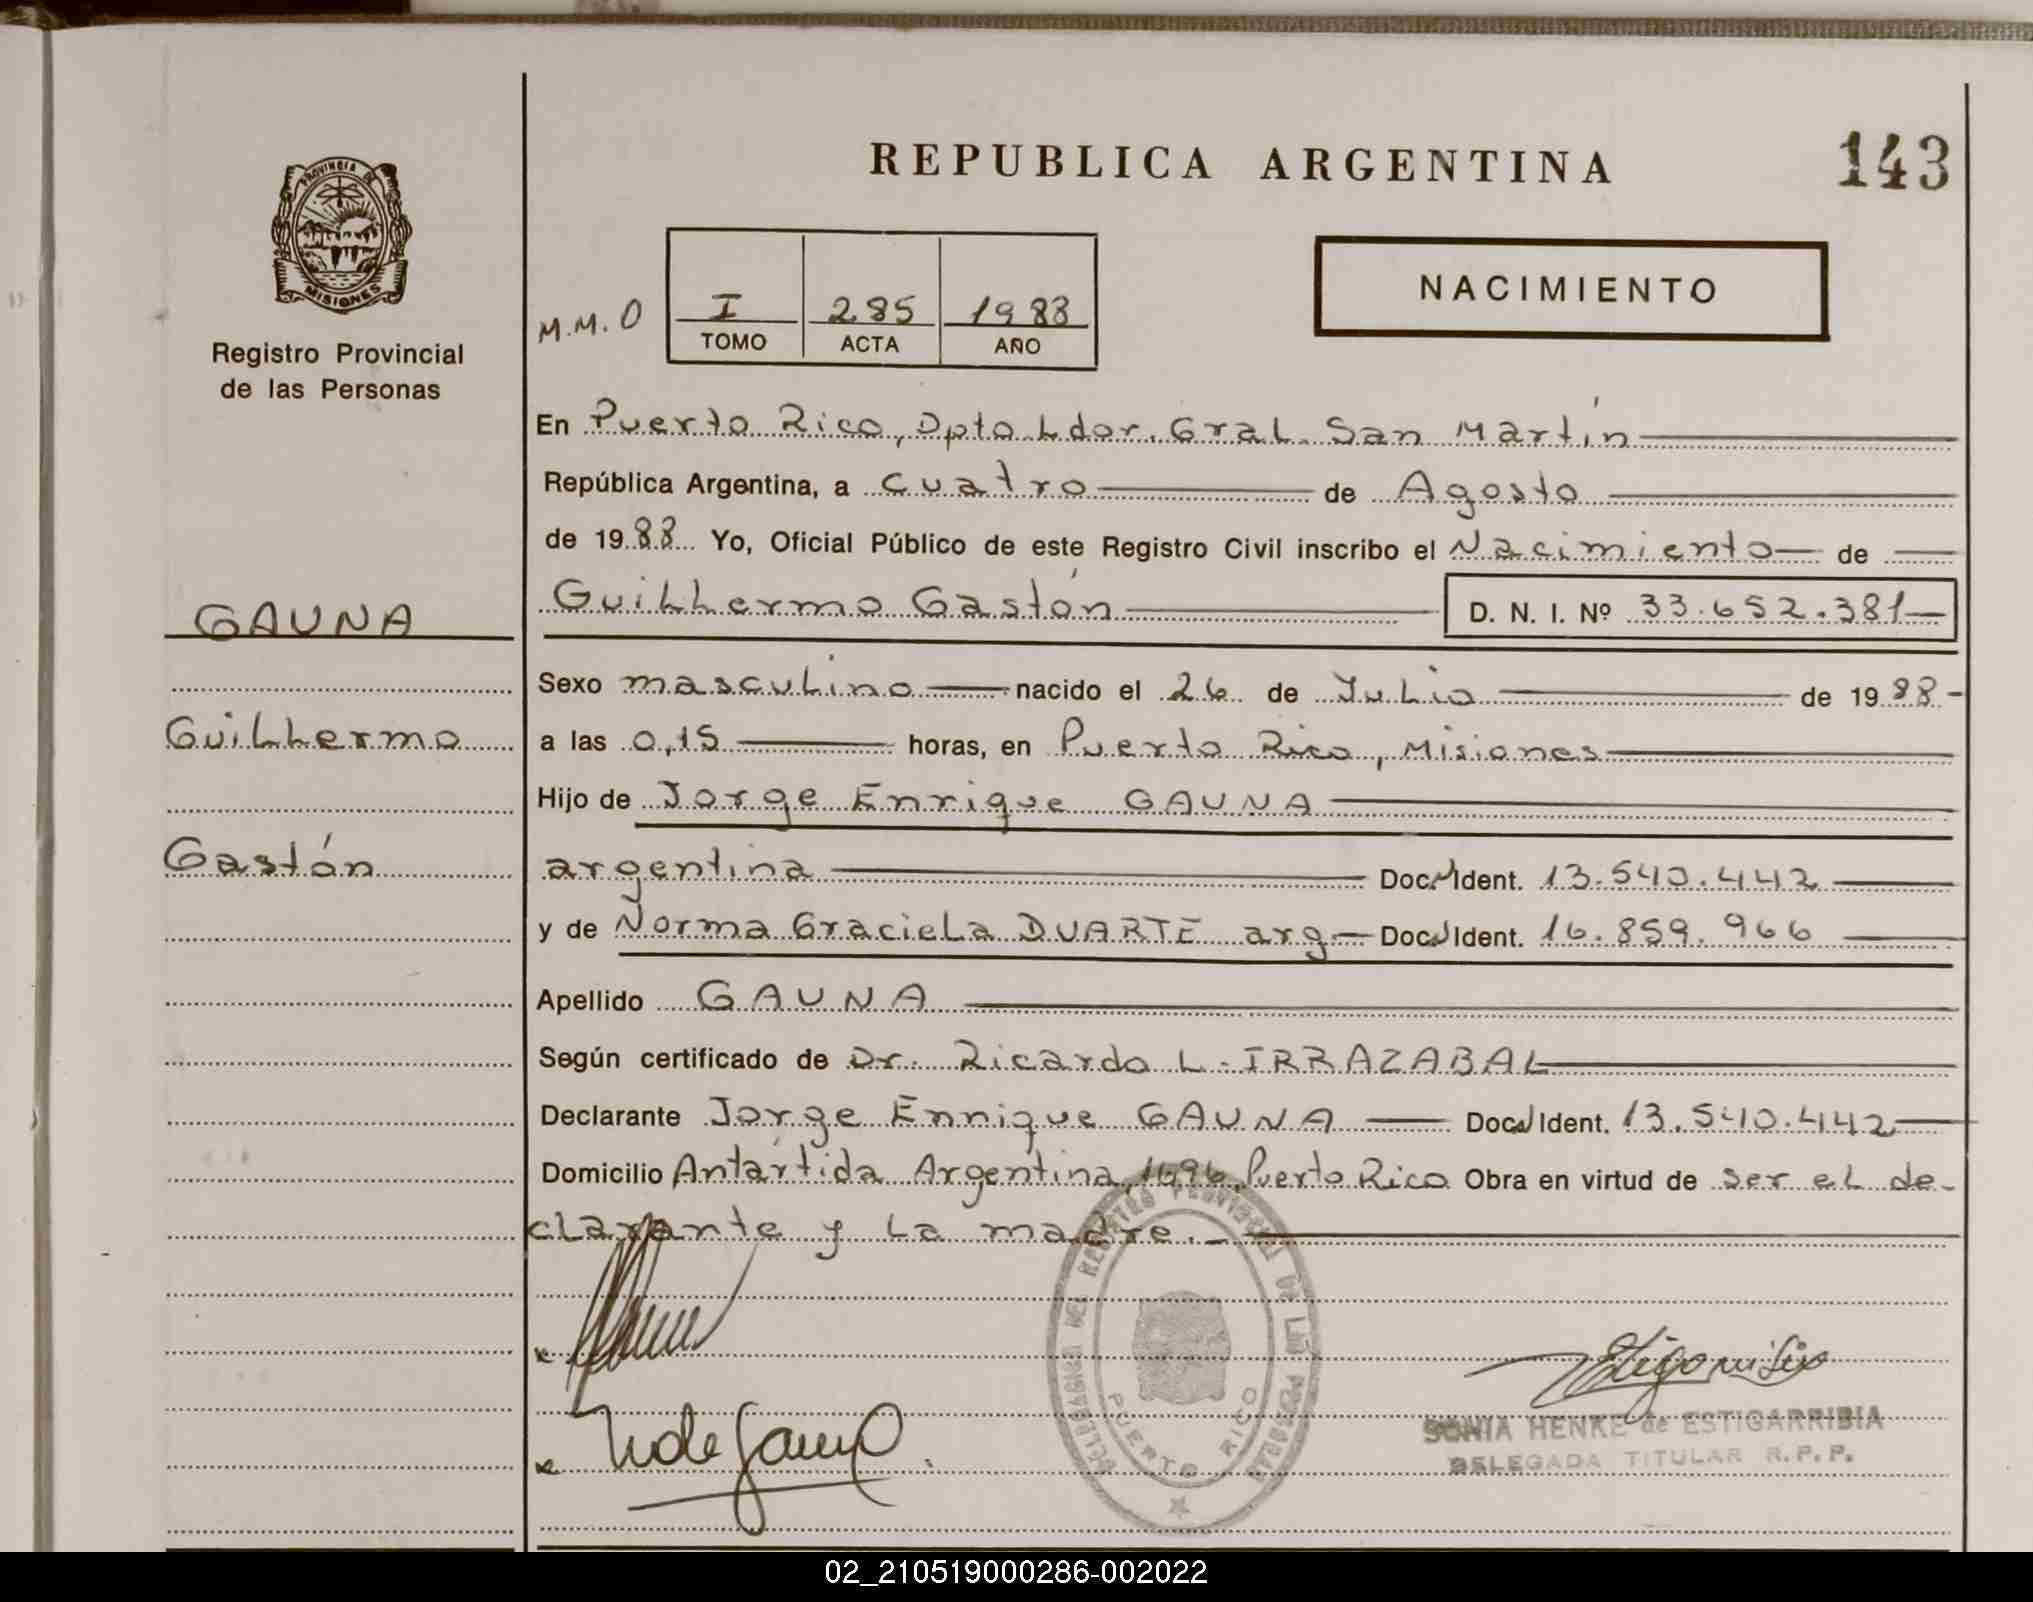 REPUBLICA ARGENTINA
143
PROVINCIA DE
MISIONES
Registro Provincial
de las Personas
M.M.O
I
2.85
1988
TOMO
ACTA
AÑO
NACIMIENTO
En Puerto Rico, Dpto Ldor. Gral. San Martín
República Argentina, a cuatro de Agosto
de 19 88 Yo, Oficial Público de este Registro Civil inscribo el Nacimiento de
Guillermo Gastón D. N. I. Nº 33.652.381
GAUNA
Guillermo
Gastón
Sexo masculino nacido el 26 de Julio de 19 88-
a las 0,15 horas, en Puerto Rico, Misiones
Hijo de Jorge Enrique GAUNA
argentina Doc. Ident. 13.540.442
y de Norma Graciela DUARTE arg Doc. Ident. 16.859.966
Apellido GAUNA
Según certificado de Dr. Ricardo L. IRRAZABAL
Declarante Jorge Ennique GAUNA Doc. Ident. 13.540.442
Domicilio Antártida Argentina, 1696, Puerto Rico Obra en virtud de ser el de-
clarante y la madre.-
DELEGACION DEL REGISTRO PROVINCIAL DE LAS PERSONAS
PUERTO RICO
N de Gauna
SONIA HENKE de ESTIGARRIBIA
DELEGADA TITULAR R.P.P.
02_210519000286-002022